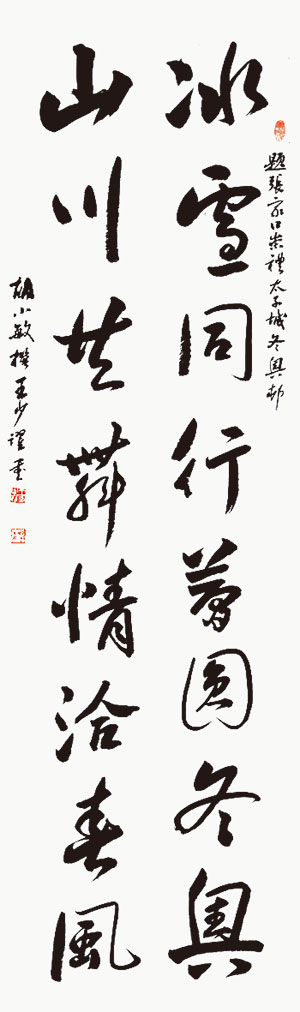 題張家口崇禮太子城冬奧村
冰雪同行夢圓冬奧
山川共舞情洽春風
胡小敏撰王少躍書